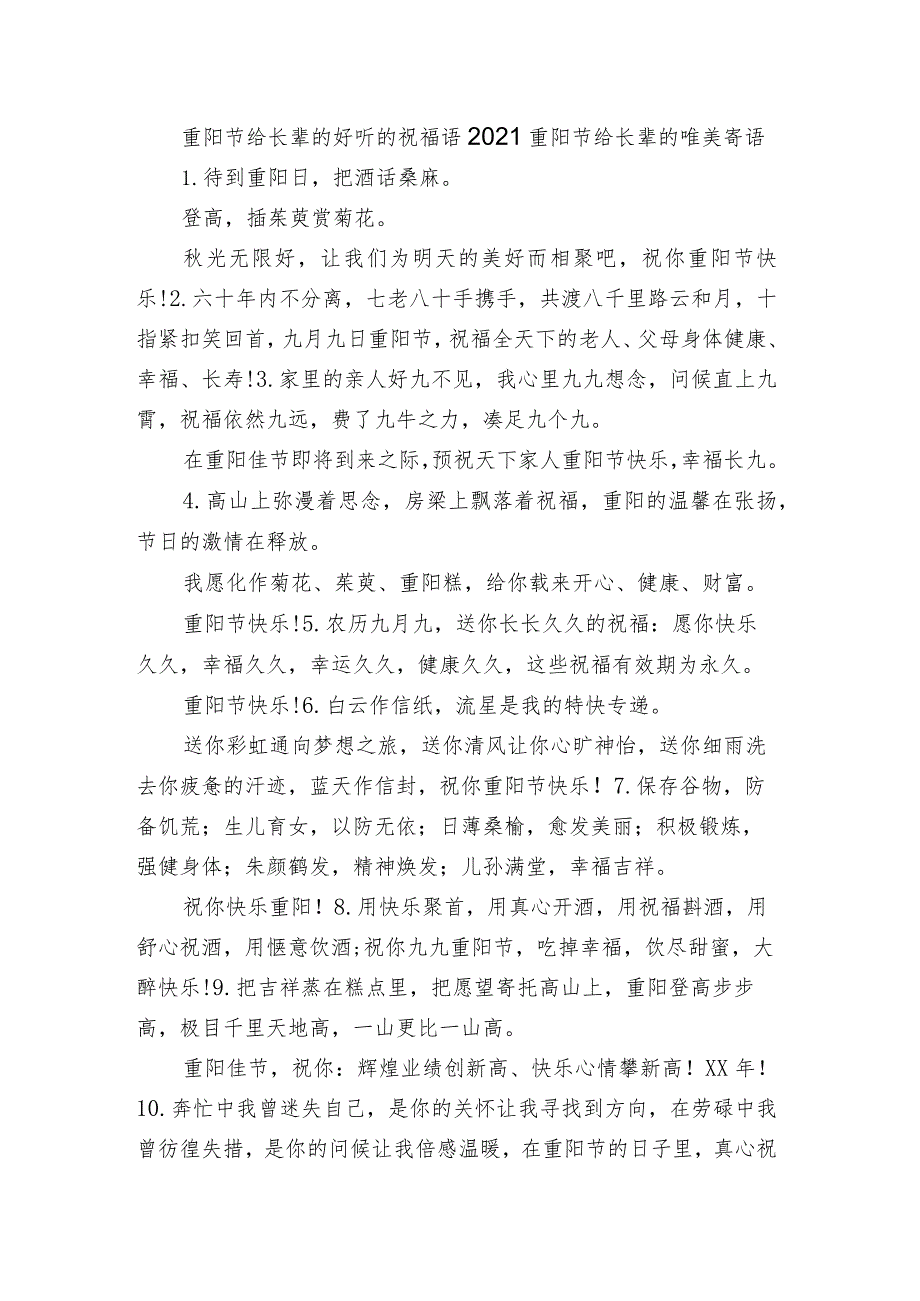 重阳节给长辈的好听的祝福语2021重阳节给长辈的唯美寄语
1.待到重阳日，把酒话桑麻。
登高，插茱萸赏菊花。
秋光无限好，让我们为明天的美好而相聚吧，祝你重阳节快
乐!2.六十年内不分离，七老八十手携手，共渡八千里路云和月，十
指紧扣笑回首，九月九日重阳节，祝福全天下的老人、父母身体健康、
幸福、长寿!3.家里的亲人好九不见，我心里九九想念，问候直上九
霄，祝福依然九远，费了九牛之力，凑足九个九。
在重阳佳节即将到来之际，预祝天下家人重阳节快乐，幸福长九。
4.高山上弥漫着思念，房梁上飘落着祝福，重阳的温馨在张扬，
节日的激情在释放。
我愿化作菊花、茱萸、重阳糕，给你载来开心、健康、财富。
重阳节快乐!5.农历九月九，送你长长久久的祝福：愿你快乐
久久，幸福久久，幸运久久，健康久久，这些祝福有效期为永久。
重阳节快乐!6.白云作信纸，流星是我的特快专递。
送你彩虹通向梦想之旅，送你清风让你心旷神怡，送你细雨洗
去你疲惫的汗迹，蓝天作信封，祝你重阳节快乐！7.保存谷物，防
备饥荒；生儿育女，以防无依；日薄桑榆，愈发美丽；积极锻炼，
强健身体；朱颜鹤发，精神焕发；儿孙满堂，幸福吉祥。
祝你快乐重阳！8.用快乐聚首，用真心开酒，用祝福斟酒，用
舒心祝酒，用惬意饮酒;祝你九九重阳节，吃掉幸福，饮尽甜蜜，大
醉快乐!9.把吉祥蒸在糕点里，把愿望寄托高山上，重阳登高步步
高，极目千里天地高，一山更比一山高。
重阳佳节，祝你：辉煌业绩创新高、快乐心情攀新高！XX年！
10.奔忙中我曾迷失自己，是你的关怀让我寻找到方向，在劳碌中我
曾彷徨失措，是你的问候让我倍感温暖，在重阳节的日子里，真心祝